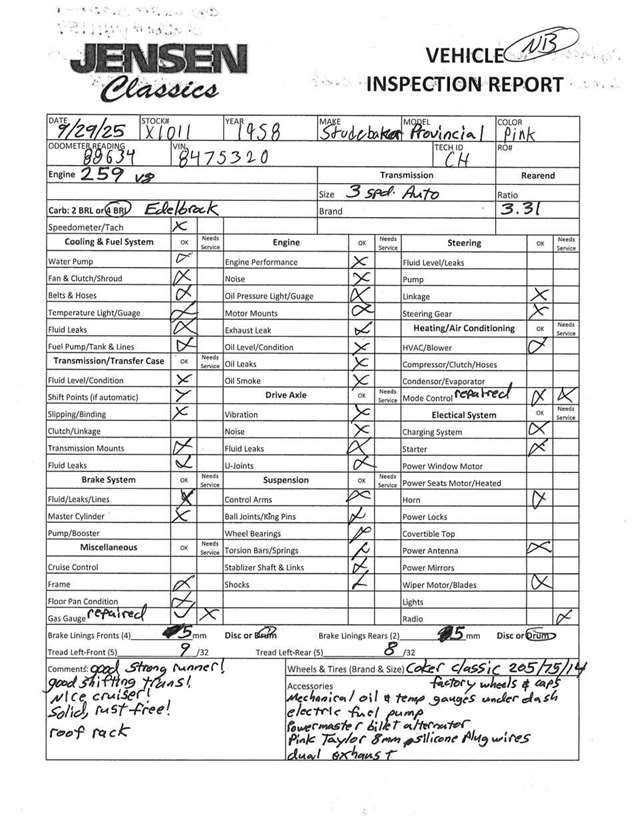 JENSEN
Classics
VEHICLE NB
INSPECTION REPORT
DATE STOCK# YEAR MAKE MODEL COLOR
9/29/25 X1011 1958 Studebaker Provincial Pink
ODOMETER READING VIN TECH ID RO#
88634 8475320 CH
Engine 259 V8 Transmission Rearend
Size 3 spd. Auto Ratio
Carb: 2 BRL or 4 BRL Edelbrock Brand 3.31
Speedometer/Tach X
Cooling & Fuel System OK Needs Service Engine OK Needs Service Steering OK Needs Service
Water Pump Engine Performance X Fluid Level/Leaks
Fan & Clutch/Shroud Noise X Pump
Belts & Hoses Oil Pressure Light/Guage Linkage X
Temperature Light/Guage Motor Mounts Steering Gear X
Fluid Leaks Exhaust Leak Heating/Air Conditioning OK Needs Service
Fuel Pump/Tank & Lines Oil Level/Condition X HVAC/Blower
Transmission/Transfer Case OK Needs Service Oil Leaks X Compressor/Clutch/Hoses
Fluid Level/Condition X Oil Smoke X Condensor/Evaporator
Shift Points (if automatic) Drive Axle OK Needs Service Mode Control repaired X X
Slipping/Binding X Vibration X Electical System OK Needs Service
Clutch/Linkage Noise X Charging System
Transmission Mounts Fluid Leaks Starter
Fluid Leaks U-Joints Power Window Motor
Brake System OK Needs Service Suspension OK Needs Service Power Seats Motor/Heated
Fluid/Leaks/Lines X Control Arms Horn
Master Cylinder X Ball Joints/King Pins Power Locks
Pump/Booster Wheel Bearings Covertible Top
Miscellaneous OK Needs Service Torsion Bars/Springs Power Antenna
Cruise Control Stablizer Shaft & Links Power Mirrors
Frame Shocks Wiper Motor/Blades
Floor Pan Condition Lights
Gas Gauge repaired X Radio
Brake Linings Fronts (4) 5 mm Disc or Drum Brake Linings Rears (2) 5 mm Disc or Drum
Tread Left-Front (5) 9 /32 Tread Left-Rear (5) 8 /32
Comments: good strong runner!
good shifting trans!
Nice cruiser!
Solid, rust-free!
roof rack
Wheels & Tires (Brand & Size) Coker Classic 205/75/14
Accessories factory wheels & caps
Mechanical oil & temp gauges under dash
electric fuel pump
Powermaster billet alternator
Pink Taylor 8mm silicone plug wires
dual exhaust